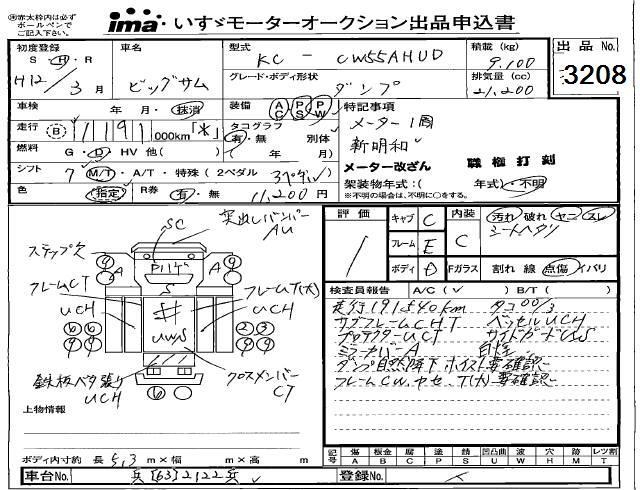 ※赤太枠内は必ず
ボールペンで
ご記入下さい。
ima いすゞモーターオークション出品申込書
初度登録 車名 型式 積載 (kg) 出品 No.
S・H・R ビッグサム KC - CW55AHUD 9,100 3208
H12/3月 グレード・ボディ形状 ダンプ 排気量 (cc) 21,200
車検 年・月・抹消 装備 AC PS PW 特記事項
走行 (B) 1191,000km 「*」 タコグラフ 有・無 別体 メーター1周
燃料 G・D・HV 他( ) ( 年 月) 新明和
シフト 7 M/T・A/T・特殊 (2ペダル 3ペダル) メーター改ざん 職権打刻
色 (指定) R券 有・無 11,200円 架装物年式:( 年式)・不明
※不明の場合は、不明に○をする。
突出しバンパー AU
SC
ステップ欠
フレームCT
UCH
A A
S
フレームT(大)
UCH
UWS
鉄板ベタ張り
UCH
クロスメンバー
CT
上物情報
評価 キャブ C 内装 汚れ・破れ・ヤニ・スレ
フレーム E C シートヘタリ
ボディ D Fガラス 割れ 線 点傷 イバリ
検査員報告 A/C( ✓ ) B/T( )
走行1191840km タコ00/3
サブフレームUCHT ベッセルUCH
プロテクターUCT サイドガードUSS
ミラーカバーA
ダンプ自然降下 ホイスト要確認
フレームCW、ヤセ、T(大)要確認
記号 傷 板金 腐 塗 錆 凹凸曲 波 穴 跡 レツ割
A B C P S U W H M T
ボディ内寸約 長 5.3 m×幅 m×高 m
車台No. 兵[63]2122兵 登録No.